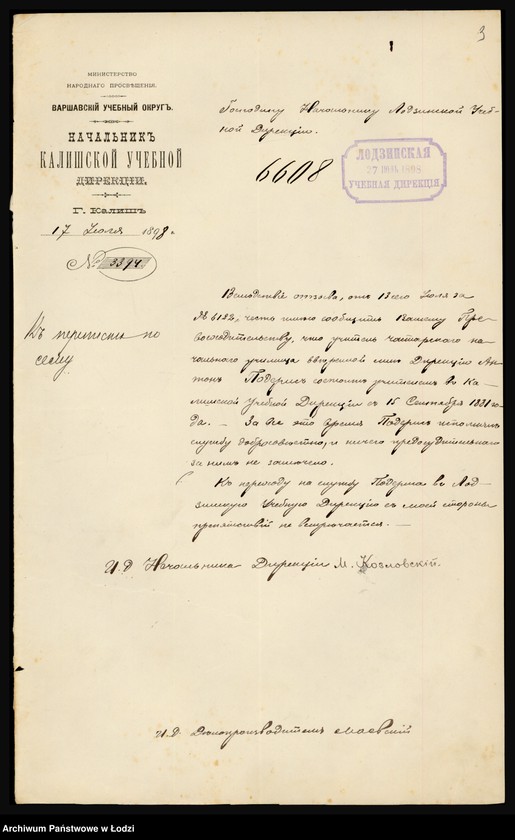 3
МИНИСТЕРСТВО
НАРОДНАГО ПРОСВѢЩЕНІЯ.
ВАРШАВСКІЙ УЧЕБНЫЙ ОКРУГЪ.
НАЧАЛЬНИКЪ
КАЛИШСКОЙ УЧЕБНОЙ
ДИРЕКЦІИ.
Г. Калишъ
17 Іюля 1898 г.
№ 3394
Къ перепискѣ по
сему
Господину Начальнику Лодзинской Учеб-
ной Дирекціи.
6608
ЛОДЗИНСКАЯ
УЧЕБНАЯ ДИРЕКЦІЯ
Вслѣдствіе отзыва, отъ 13 сего Іюля за
№ 6182, честь имѣю сообщить Вашему Пре-
восходительству, что учитель на-
чальнаго училища ввѣренной мнѣ Дирекціи Ан-
тонъ состоитъ учителемъ въ Ка-
лишской Учебной Дирекціи съ 15 Сентября 1881 го-
да. — За все это время исполнялъ
службу добросовѣстно, и ничего предосудительнаго
за нимъ не замѣчено.
Къ переходу на службу въ Лод-
зинскую Учебную Дирекцію съ моей стороны
препятствій не встрѣчается. —
И.Д. Начальника Дирекціи М. Козловскій.
И.Д. Дѣлопроизводителя Маевскій
Archiwum Państwowe w Łodzi